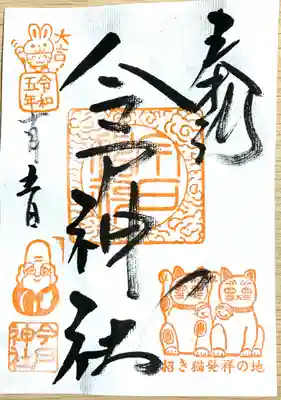 奉拝
今戸神社
大吉
令和
五年
招き猫発祥の地
今戸
神社